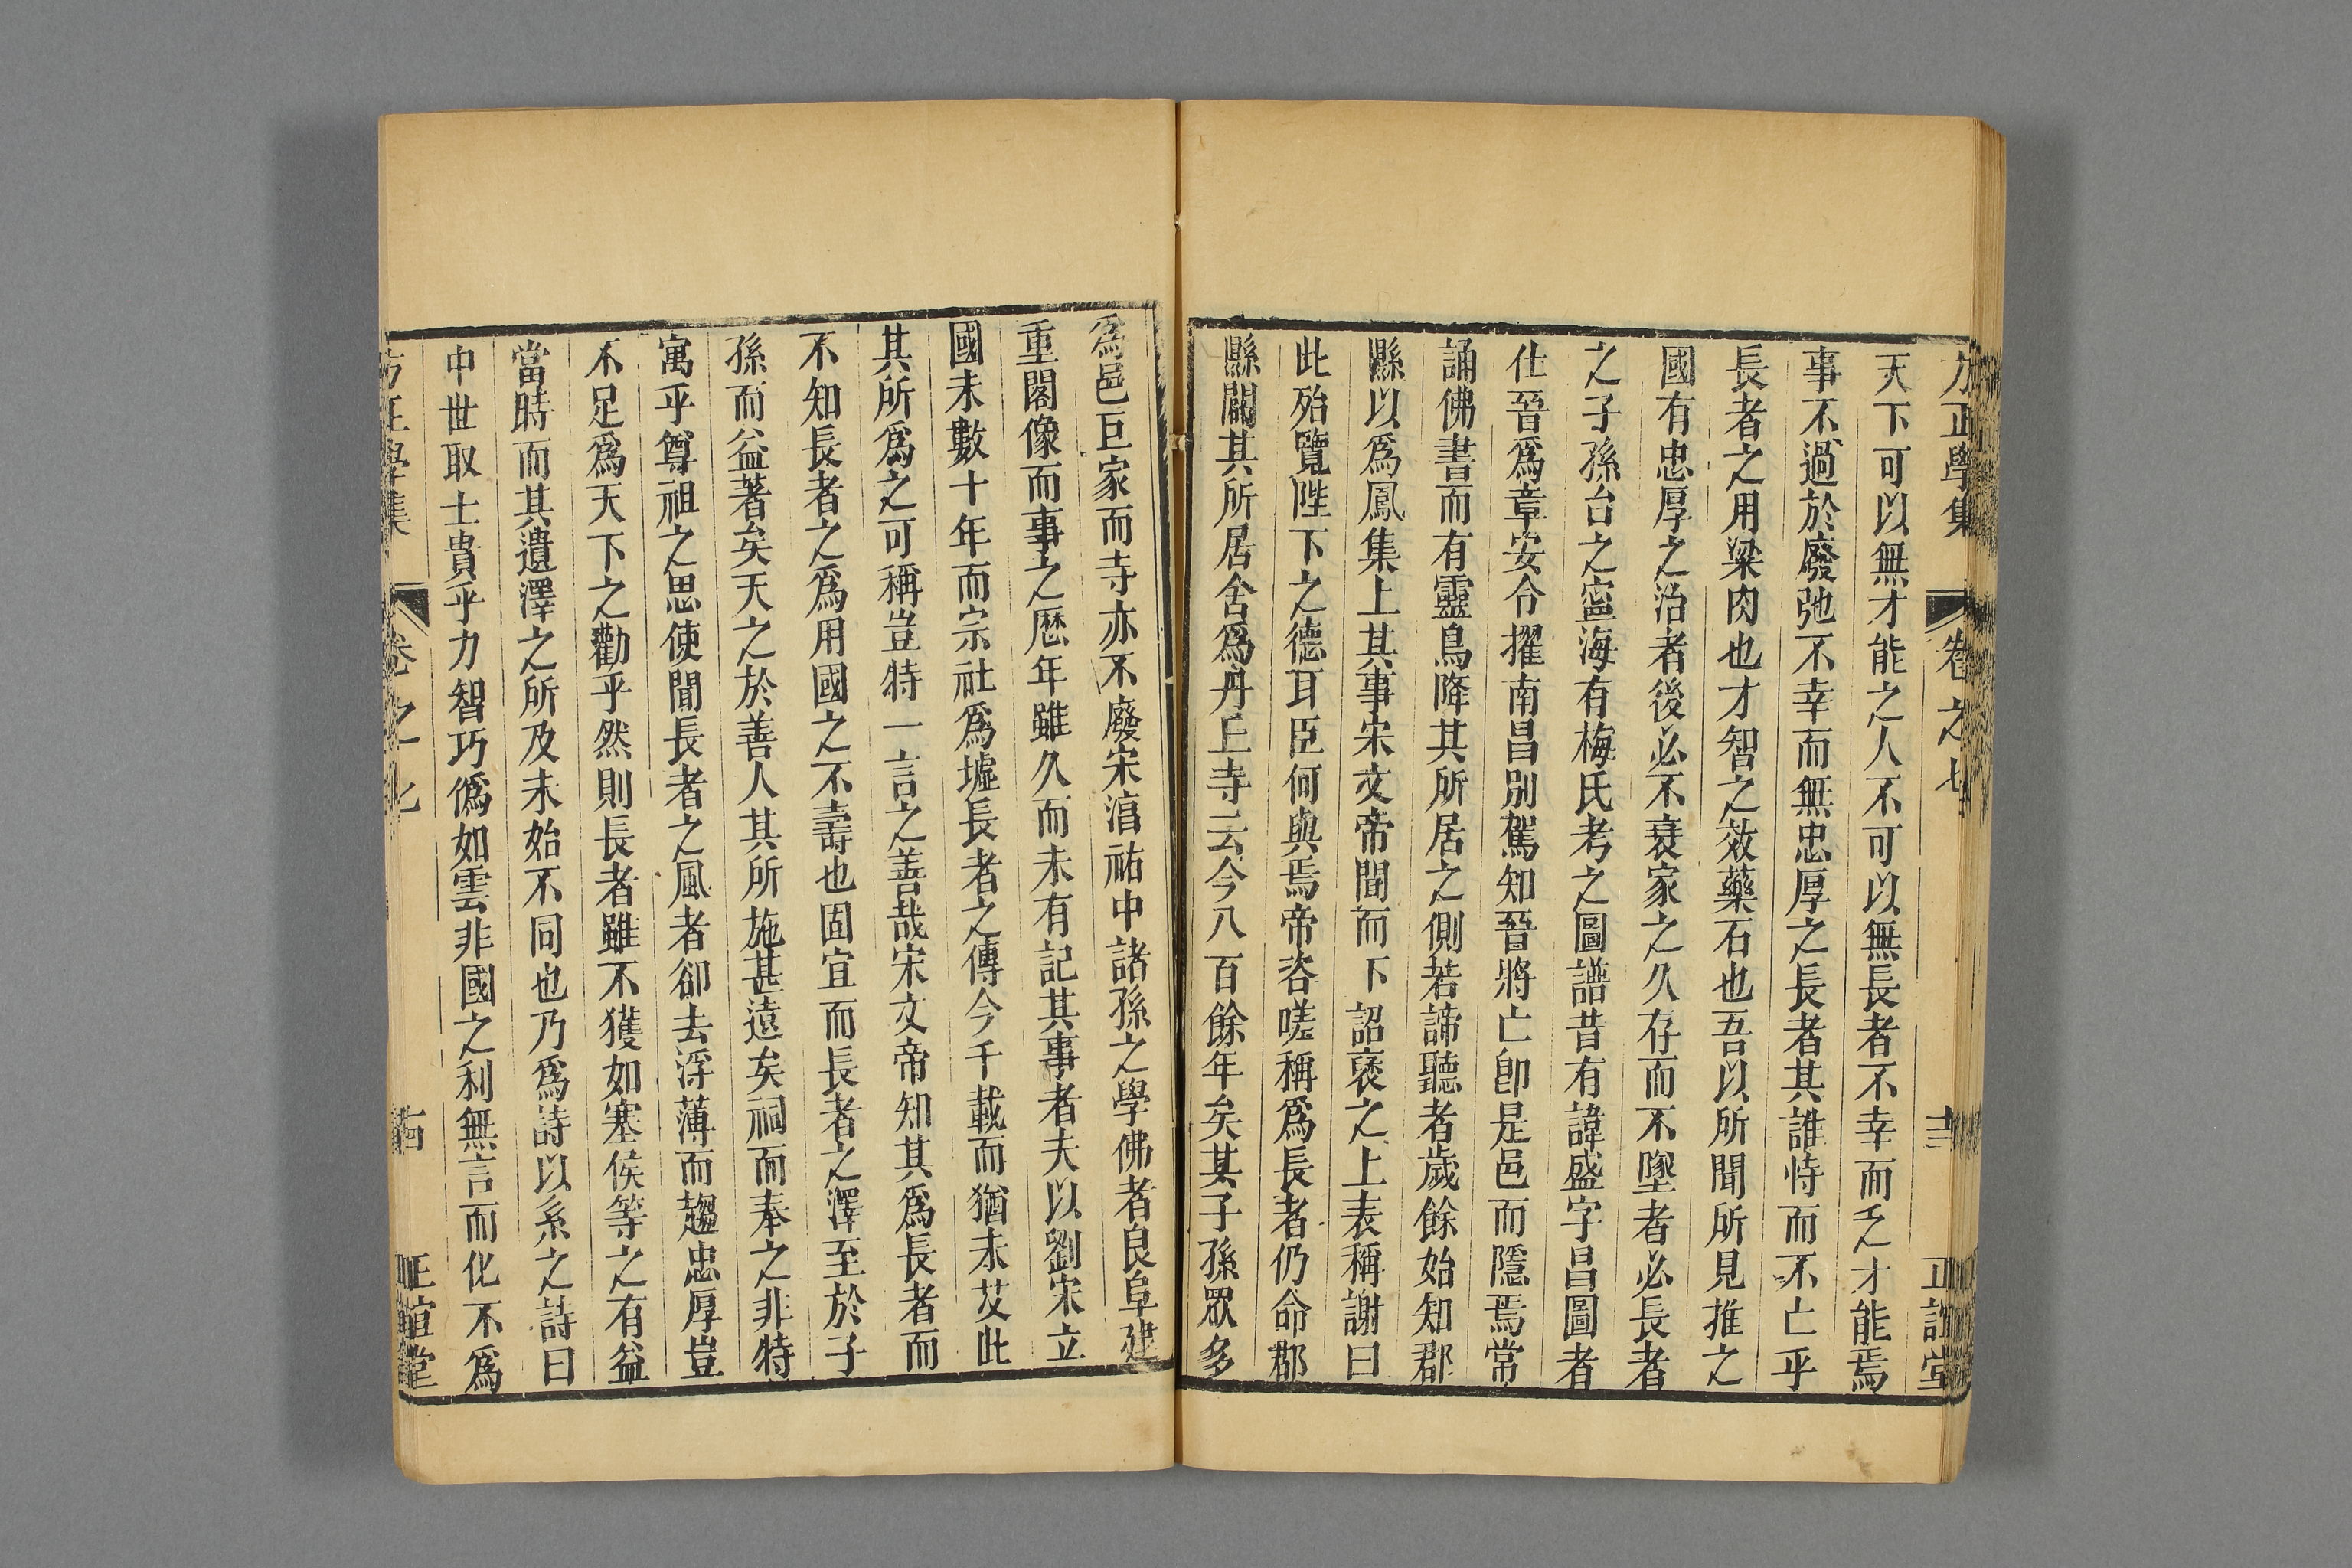 方正學集 卷之七 十三 正誼堂
天下可以無才能之人不可以無長者不幸而乏才能焉
事不過於廢弛不幸而無忠厚之長者其誰恃而不亡乎
長者之用粱肉也才智之效藥石也吾以所聞所見推之
國有忠厚之治者後必不衰家之久存而不墜者必長者
之子孫台之寧海有梅氏考之圖譜昔有諱盛字昌圖者
仕晉爲章安令擢南昌別駕知晉將亡卽是邑而隱焉常
誦佛書而有靈鳥降其所居之側若諦聽者歲餘始知郡
縣以爲鳳集上其事宋文帝聞而下詔褒之上表稱謝曰
此殆覽陛下之德耳臣何與焉帝咨嗟稱爲長者仍命郡
縣闢其所居舍爲丹丘寺云今八百餘年矣其子孫眾多
爲邑巨家而寺亦不廢宋淳祐中諸孫之學佛者良阜建
重閣像而事之厯年雖久而未有記其事者夫以劉宋立
國未數十年而宗社爲墟長者之傳今千載而猶未艾此
其所爲之可稱豈特一言之善哉宋文帝知其爲長者而
不知長者之爲用國之不壽也固宜而長者之澤至於子
孫而益著矣天之於善人其所施甚遠矣祠而奉之非特
寓乎尊祖之思使聞長者之風者卻去浮薄而趨忠厚豈
不足爲天下之勸乎然則長者雖不獲如塞侯等之有益
當時而其遺澤之所及未始不同也乃爲詩以系之詩曰
中世取士貴乎力智巧僞如雲非國之利無言而化不爲
方正學集 卷之七 十四 正誼堂